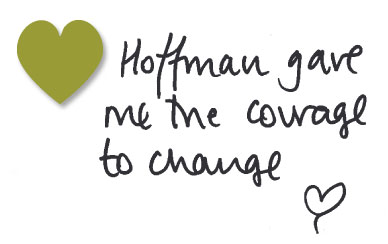 Hoffman gave
me the courage
to change